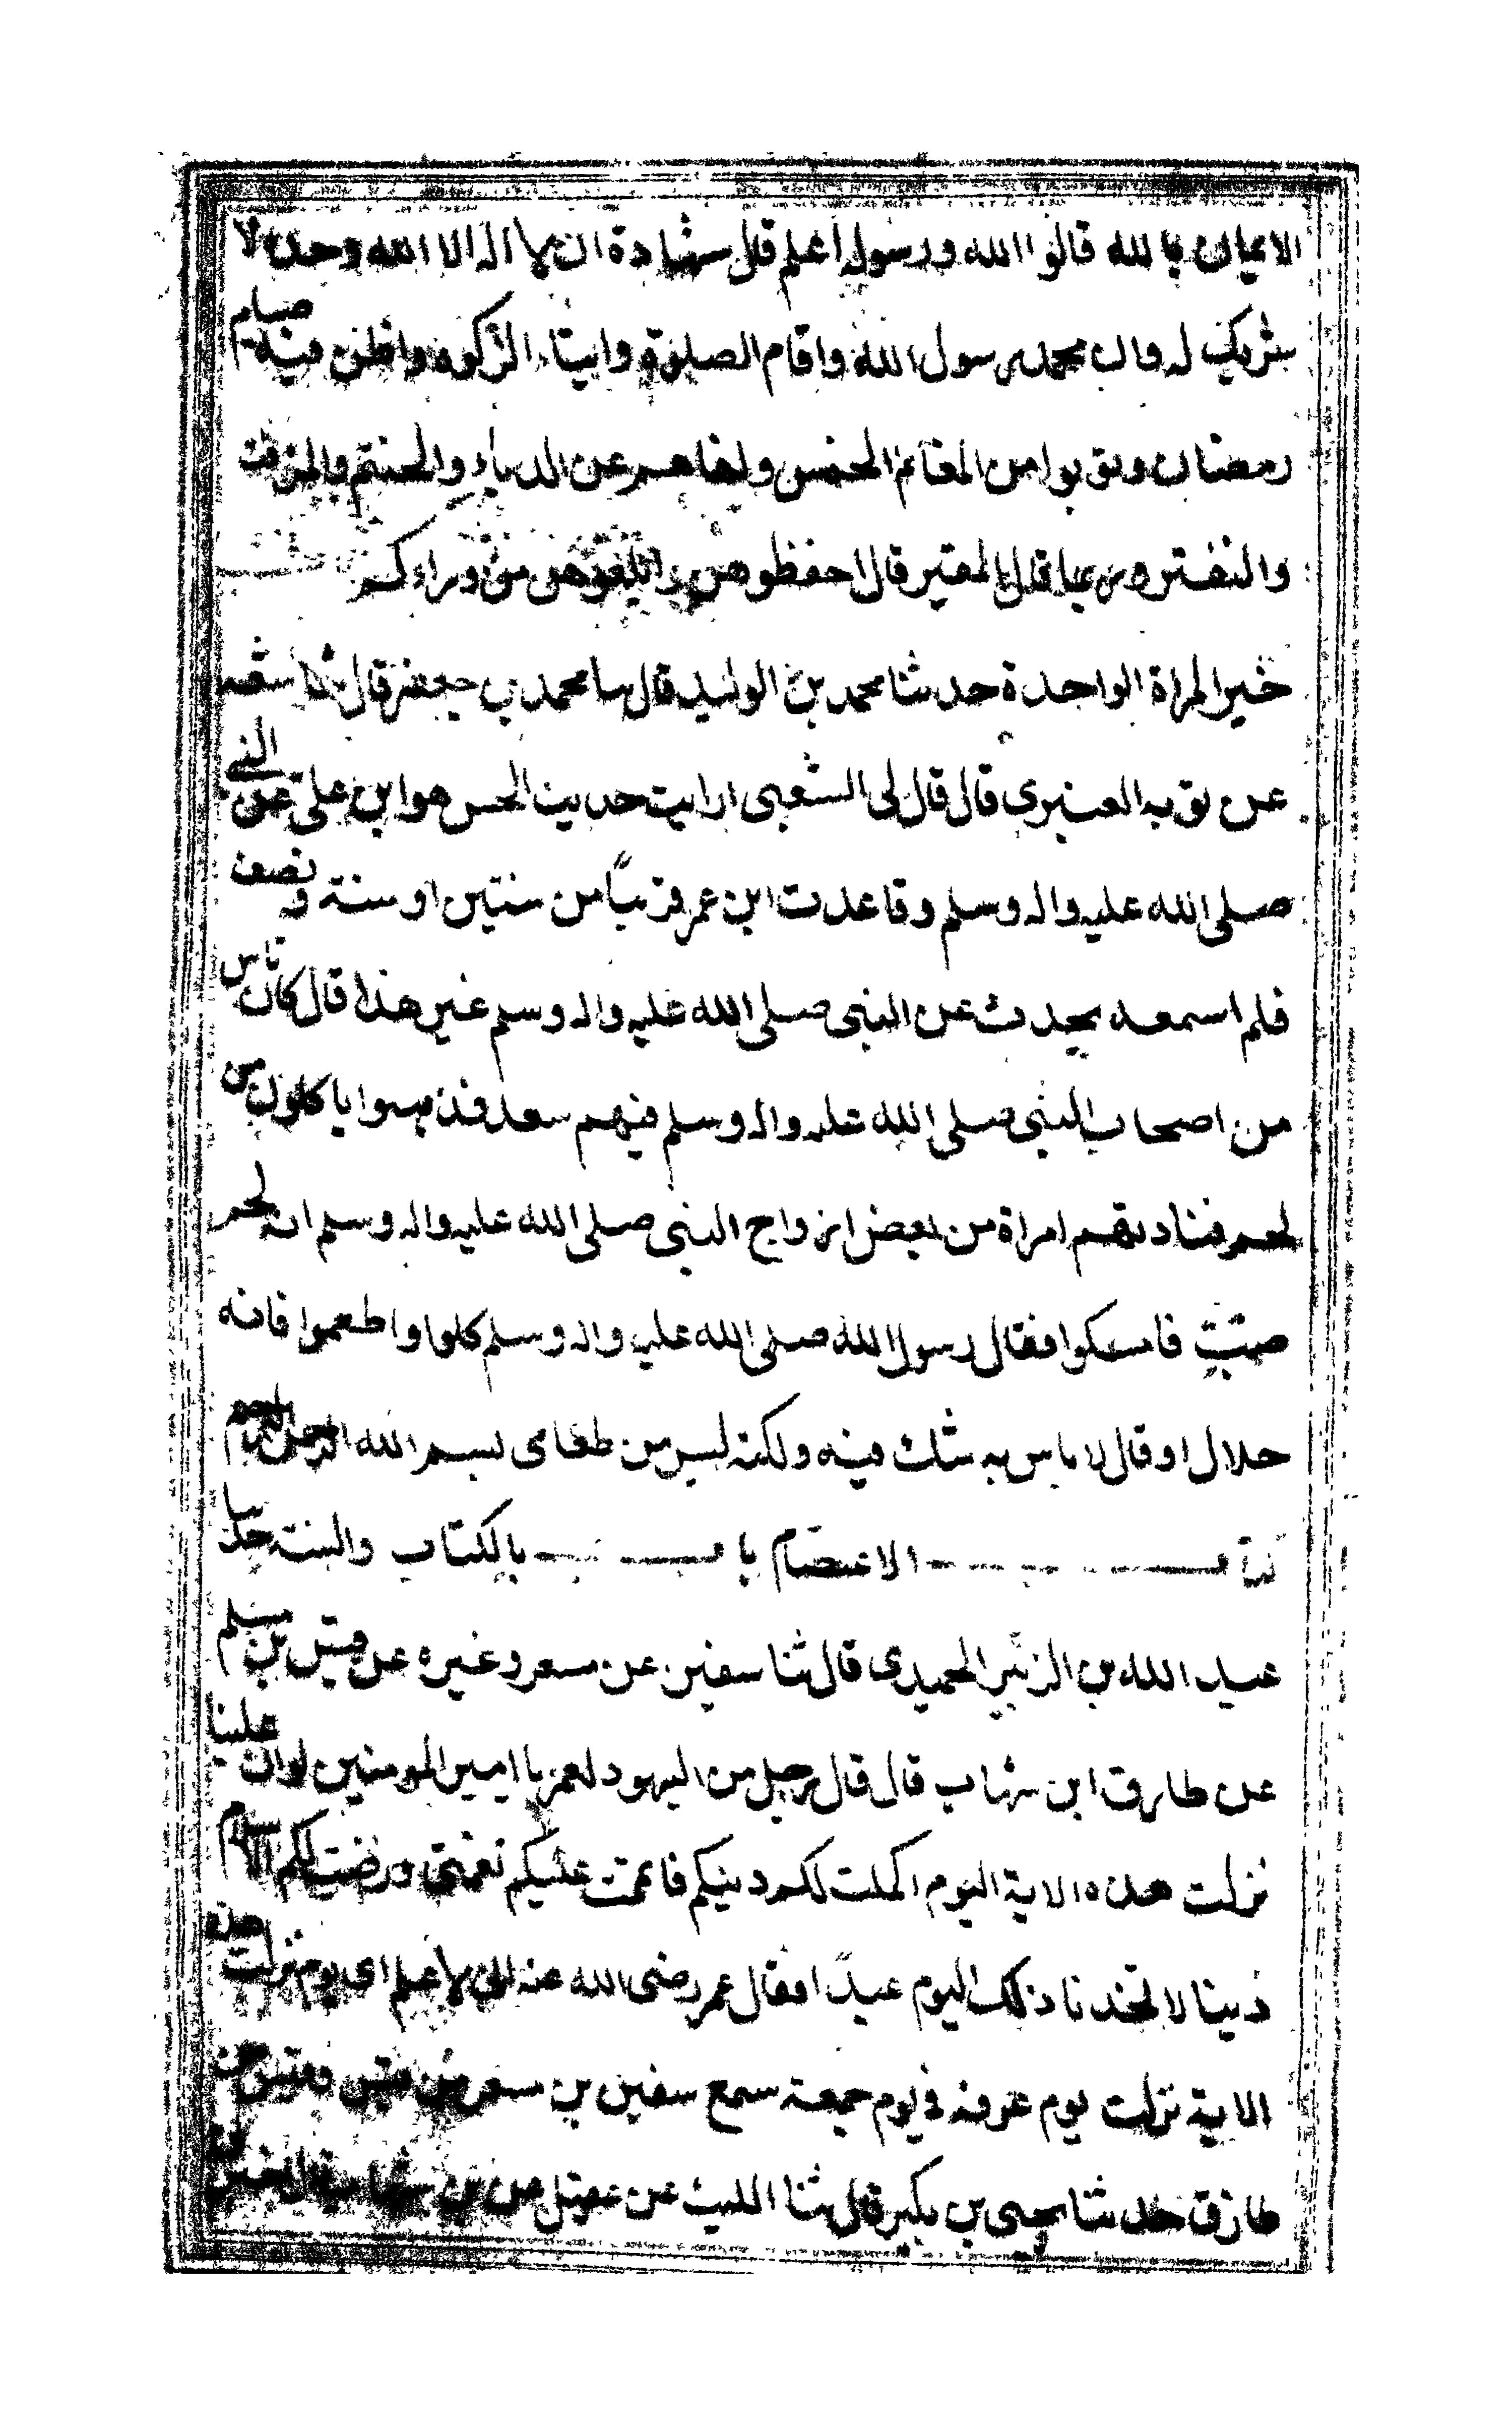 الايمان بالله قالوا الله ورسوله اعلم قال شهادة ان لا اله الا الله وحده لا
شريك له وان محمد رسول الله واقام الصلوة وايتاء الزكوة واظن فيه صيام
رمضان وتوتوا من المغانم الخمس ونهاهم عن الدباء والحنتم والمزفت
والنقير وربما قال المقير قال احفظوهن وابلغوهن من وراءكم
خبر المراة الواحدة حدثنا محمد بن الوليد قال نا محمد بن جعفر قال ثنا شعبه
عن توبه العنبري قال قال لى الشعبى ارايت حديث الحسن هو ابن على عن النبي
صلى الله عليه واله وسلم وقاعدت ابن عمر قريبًا من سنتين او سنة ونصف
فلم اسمعه يحدث عن النبى صلى الله عليه واله وسلم غير هذا قال كان ناس
من اصحاب النبى صلى الله عليه واله وسلم فيهم سعد فذهبوا ياكلون من
لحم فنادتهم امراة من بعض ازواج النبى صلى الله عليه واله وسلم انه لحم
ضب فامسكوا فقال رسول الله صلى الله عليه واله وسلم كلوا واطعموا فانه
حلال او قال لا باس به شك فيه ولكنه ليس من طعامى بسم الله الرحمن الرحيم
الاعتصام با بالكتاب والسنة حدثنا
عبد الله بن الزبير الحميدى قال ثنا سفين عن مسعر وغيره عن قيس بن مسلم
عن طارق ابن شهاب قال قال رجل من اليهود لعمر يا امير المومنين لو ان علينا
نزلت هذه الاية اليوم اكملت لكم دينكم فاتممت عليكم نعمتى ورضيت لكم الاسلام
دينا لا تخذنا ذلك اليوم عيدًا فقال عمر رضى الله عنه انى لاعلم اى يوم نزلت هذه
الاية نزلت يوم عرفة في يوم جمعة سمع سفين بن مسعر من قيس وقيس من
طارق حدثنا يحيى بن بكير قال ثنا الليث عن عقيل عن بن شهاب قال اخبرنى